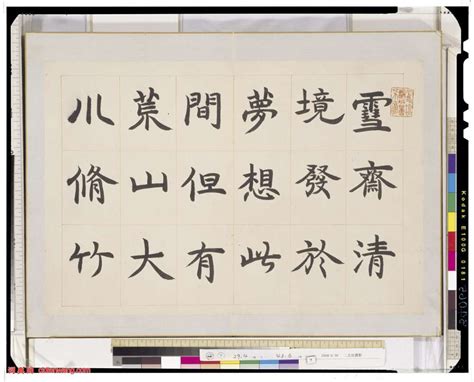 雪齋清
境發於
夢想此
間但有
荒山大
川脩竹
Kodak E100G 0181